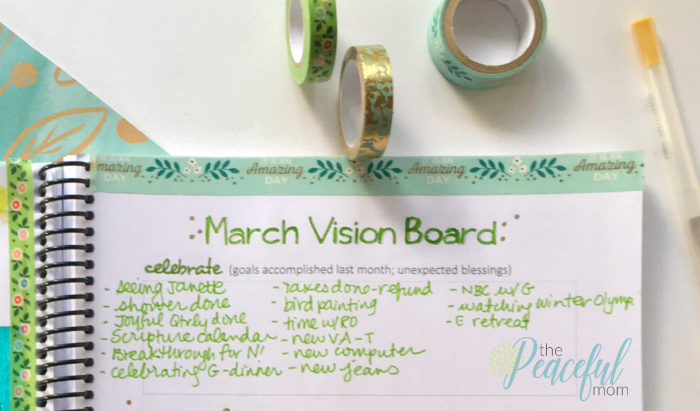 IT IS AN Amazing DAY
Amazing DAY
Amazing DAY
Amazing DAY
Amazing
March Vision Board
celebrate (goals accomplished last month; unexpected blessings)
- seeing Janette
- shower done
- Joyful Qtrly done
- Scripture calendar
- Breakthrough for N!
- celebrating G-dinner
- Taxes done-refund
- bird painting
- time w/RO
- new VA-T
- new computer
- new jeans
- NBC w/G
- watching Winter Olymp
- E retreat
the
Peaceful
mom